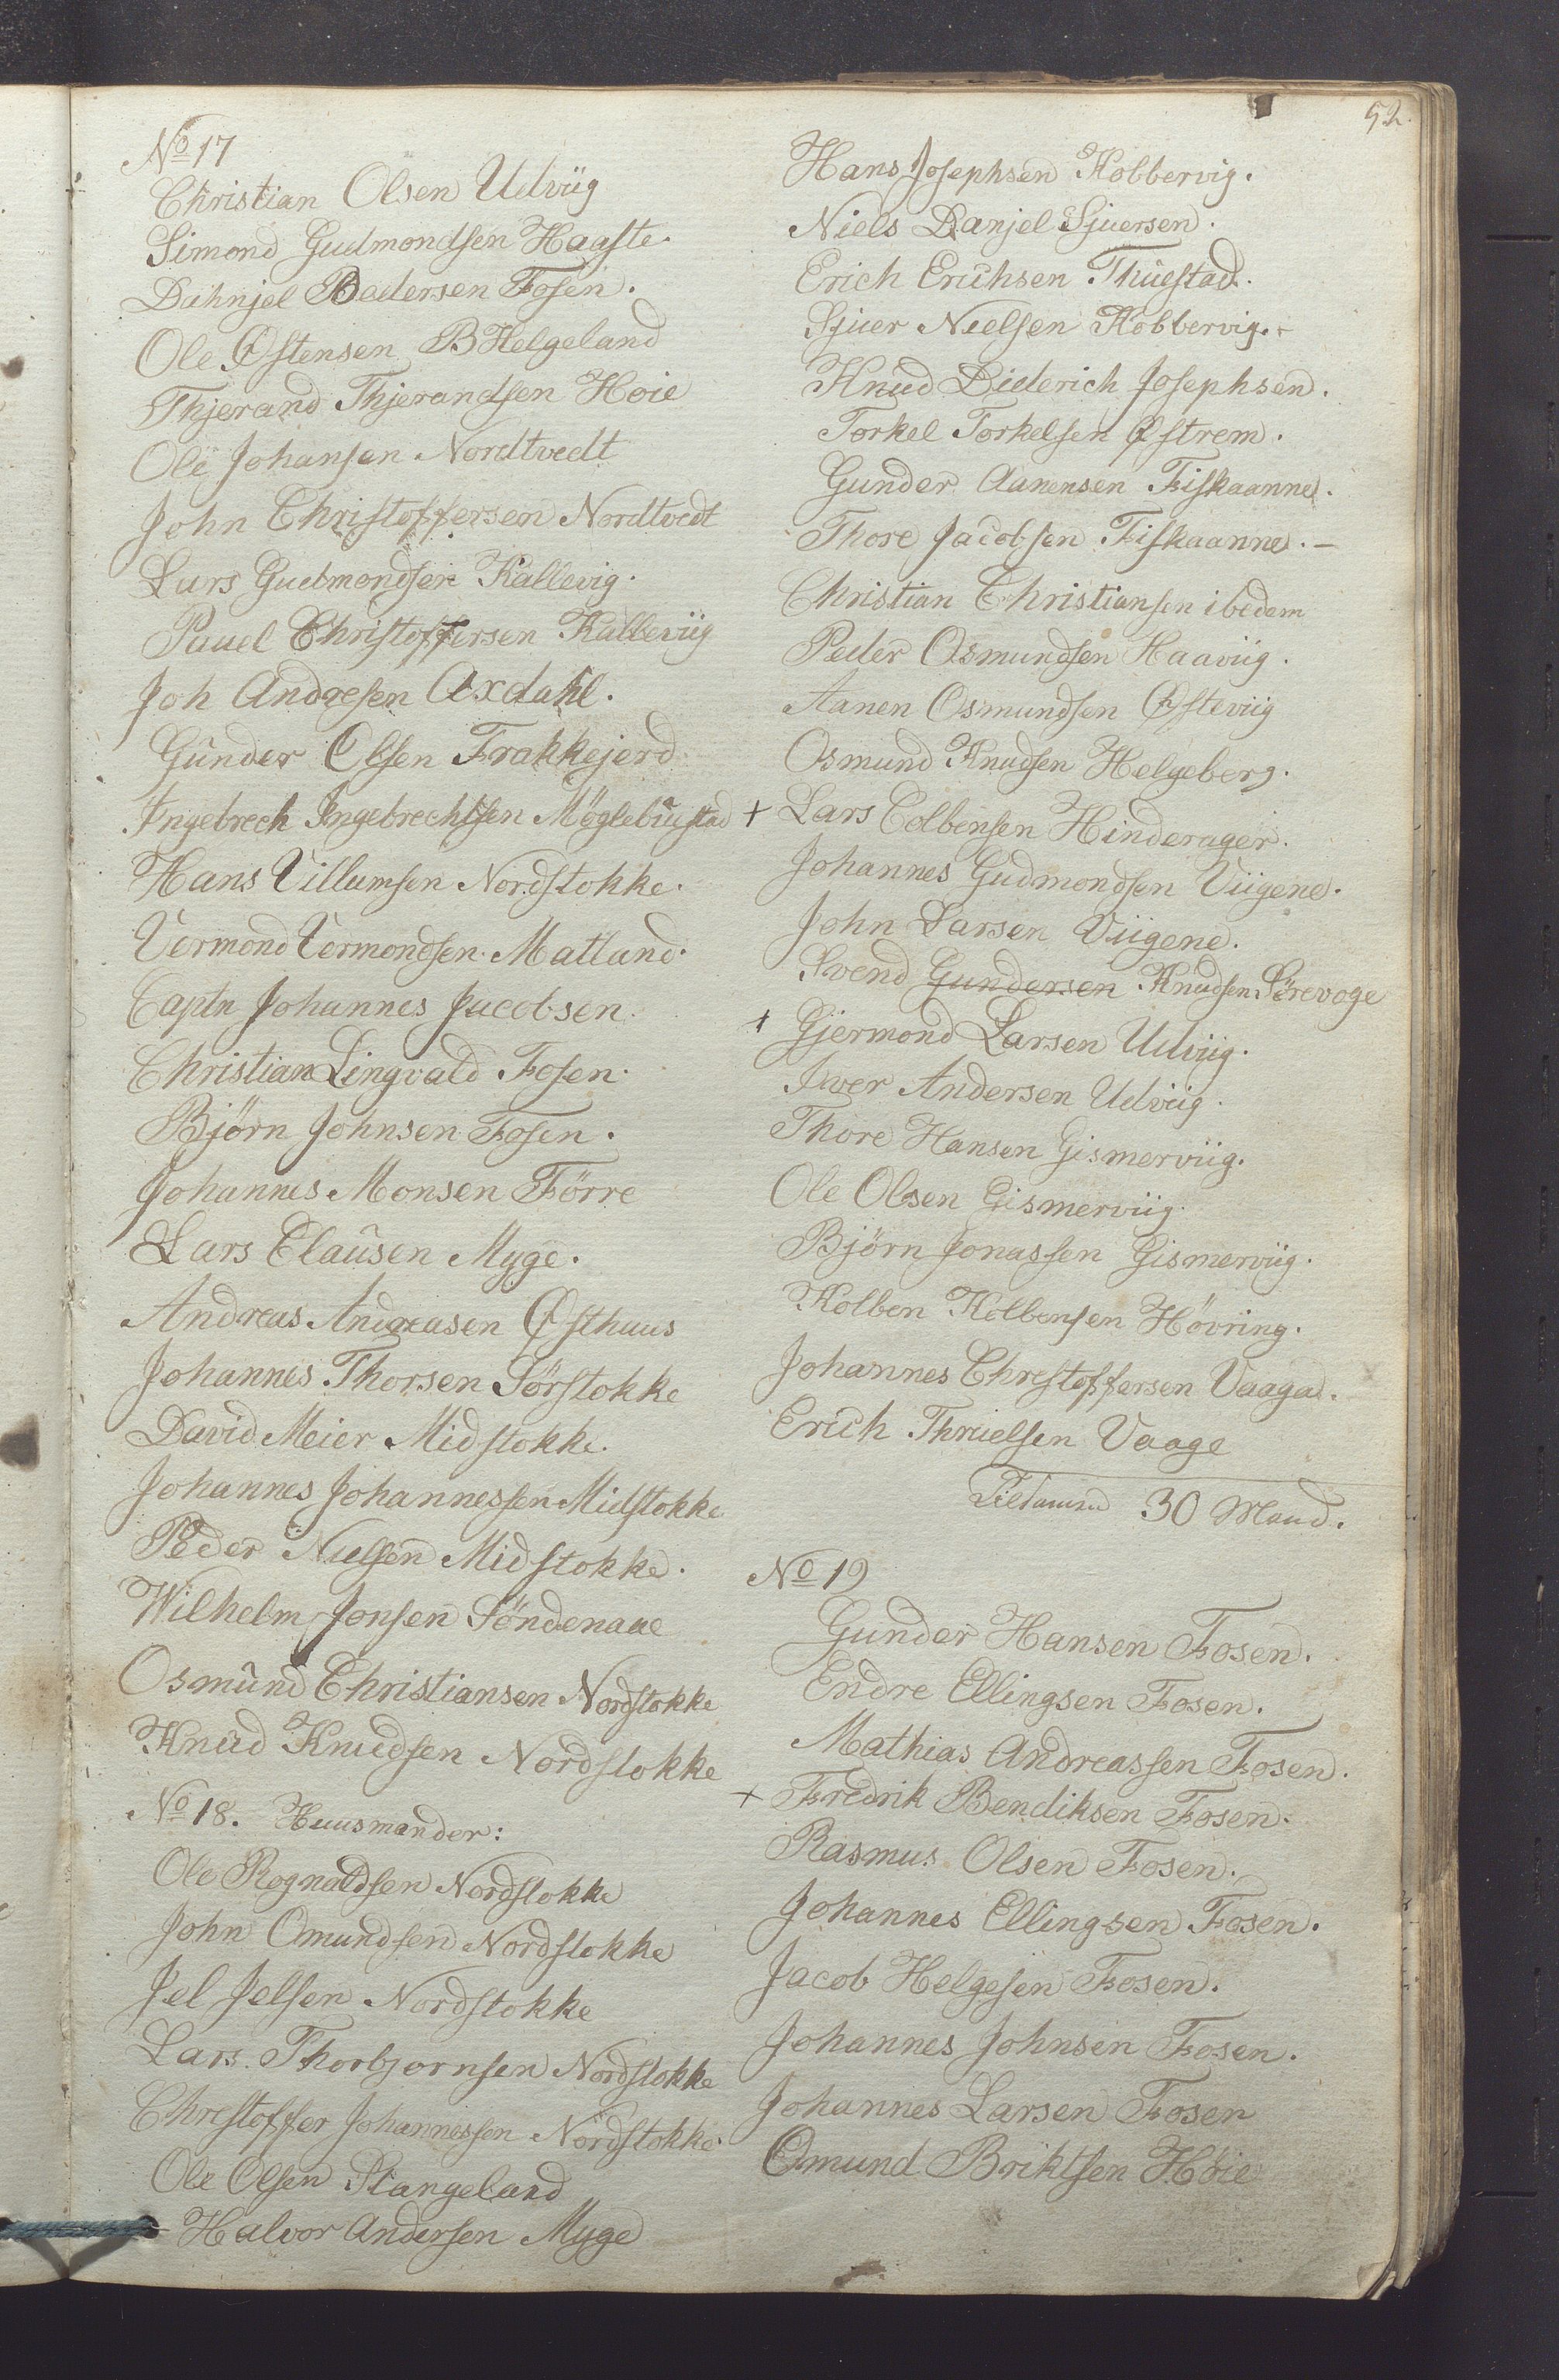 52.
No 17
Christian Olsen Udviig
Simond Gudmondsen Haaste.
Dahnjel Pedersen Fosen.
Ole Østensen B Helgeland
Thjerand Thjerandsen Høie
Ole Johansen Nordtvedt
John Christoffersen Nordtvedt
Lars Gudmondsen Kallevig.
Pauel Christoffersen Kalleviig
Joh Andresen Axdahl.
Gunder Olsen Frakkejerd
Ingebrech Ingebrechtsen Møglebustad
Hans Villumsen Nordstokke.
Vermond Vermondsen Matland.
Captn Johannes Jacobsen.
Christian Lingvald Fosen.
Bjørn Johnsen Fosen.
Johannes Monsen Førre
Lars Clausen Myge.
Andreas Andreasen Østhuus
Johannes Thorsen Sørstokke
David Meier Midstokke.
Johannes Johannessen Midstokke
Peder Nielsen Midstokke.
Wilhelm Jonsen Søndenaae
Osmund Christiansen Nordstokke
Knud Knudsen Nordstokke
No 18. Huusmander:
Ole Rognaldsen Nordstokke
John Omundsen Nordstokke
Jel Jelsen Nordstokke
Lars Thorbjornsen Nordstokke
Chrestoffer Johannessen Nordstokke.
Ole Olsen Stangeland
Halvor Andersen Myge
Hans Josephsen Kobbervig.
Niels Danjel Sjuersen.
Erich Erichsen Thuestad.
Sjuer Nielsen Kobbervig.
Knud Diderich Josephsen.
Torkel Torkelsen Østrem.
Gunder Aanensen Fiskaanne.
Thore Jacobsen Fiskaanne. –
Christian Christiansen ibedem
Peder Osmundsen Haaviig.
Aanen Osmundsen Østeviig
Osmund Knudsen Helgeberg.
+ Lars Colbensen Hinderager.
Johannes Gudmondsen Viigene.
John Larsen Viigene.
Svend Gundersen Knudsen Sørevoge
+ Gjermond Larsen Udviig.
Iver Andersen Udviig.
Thore Hansen Gismerviig.
Ole Olsen Gismerviig.
Bjørn Jonassen Gismerviig.
Kolben Kolbensen Høvring.
Johannes Chrestoffersen Vaage.
Erich Thruelsen Vaage
Tilsamen 30 Mand.
No 19
Gunder Hansen Fosen.
Endre Ellingsen Fosen.
Mathias Andreassen Fosen.
+ Fredrik Bendiksen Fosen.
Rasmus Olsen Fosen.
Johannes Ellingsen Fosen.
Jacob Helgesen Fosen.
Johannes Johnsen Fosen.
Johannes Larsen Fosen
Omund Briktsen Høie